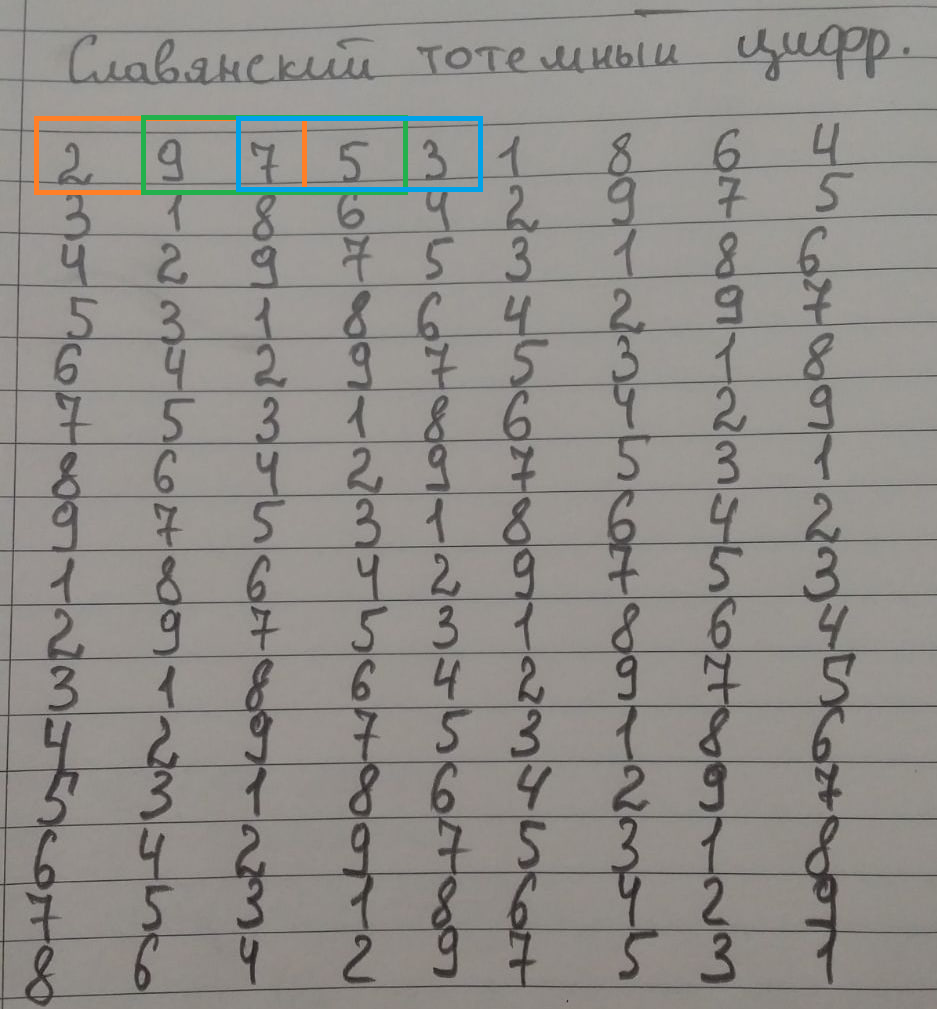 Славянский тотемный цифр.
2 9 7 5 3 1 8 6 4
3 1 8 6 4 2 9 7 5
4 2 9 7 5 3 1 8 6
5 3 1 8 6 4 2 9 7
6 4 2 9 7 5 3 1 8
7 5 3 1 8 6 4 2 9
8 6 4 2 9 7 5 3 1
9 7 5 3 1 8 6 4 2
1 8 6 4 2 9 7 5 3
2 9 7 5 3 1 8 6 4
3 1 8 6 4 2 9 7 5
4 2 9 7 5 3 1 8 6
5 3 1 8 6 4 2 9 7
6 4 2 9 7 5 3 1 8
7 5 3 1 8 6 4 2 9
8 6 4 2 9 7 5 3 1